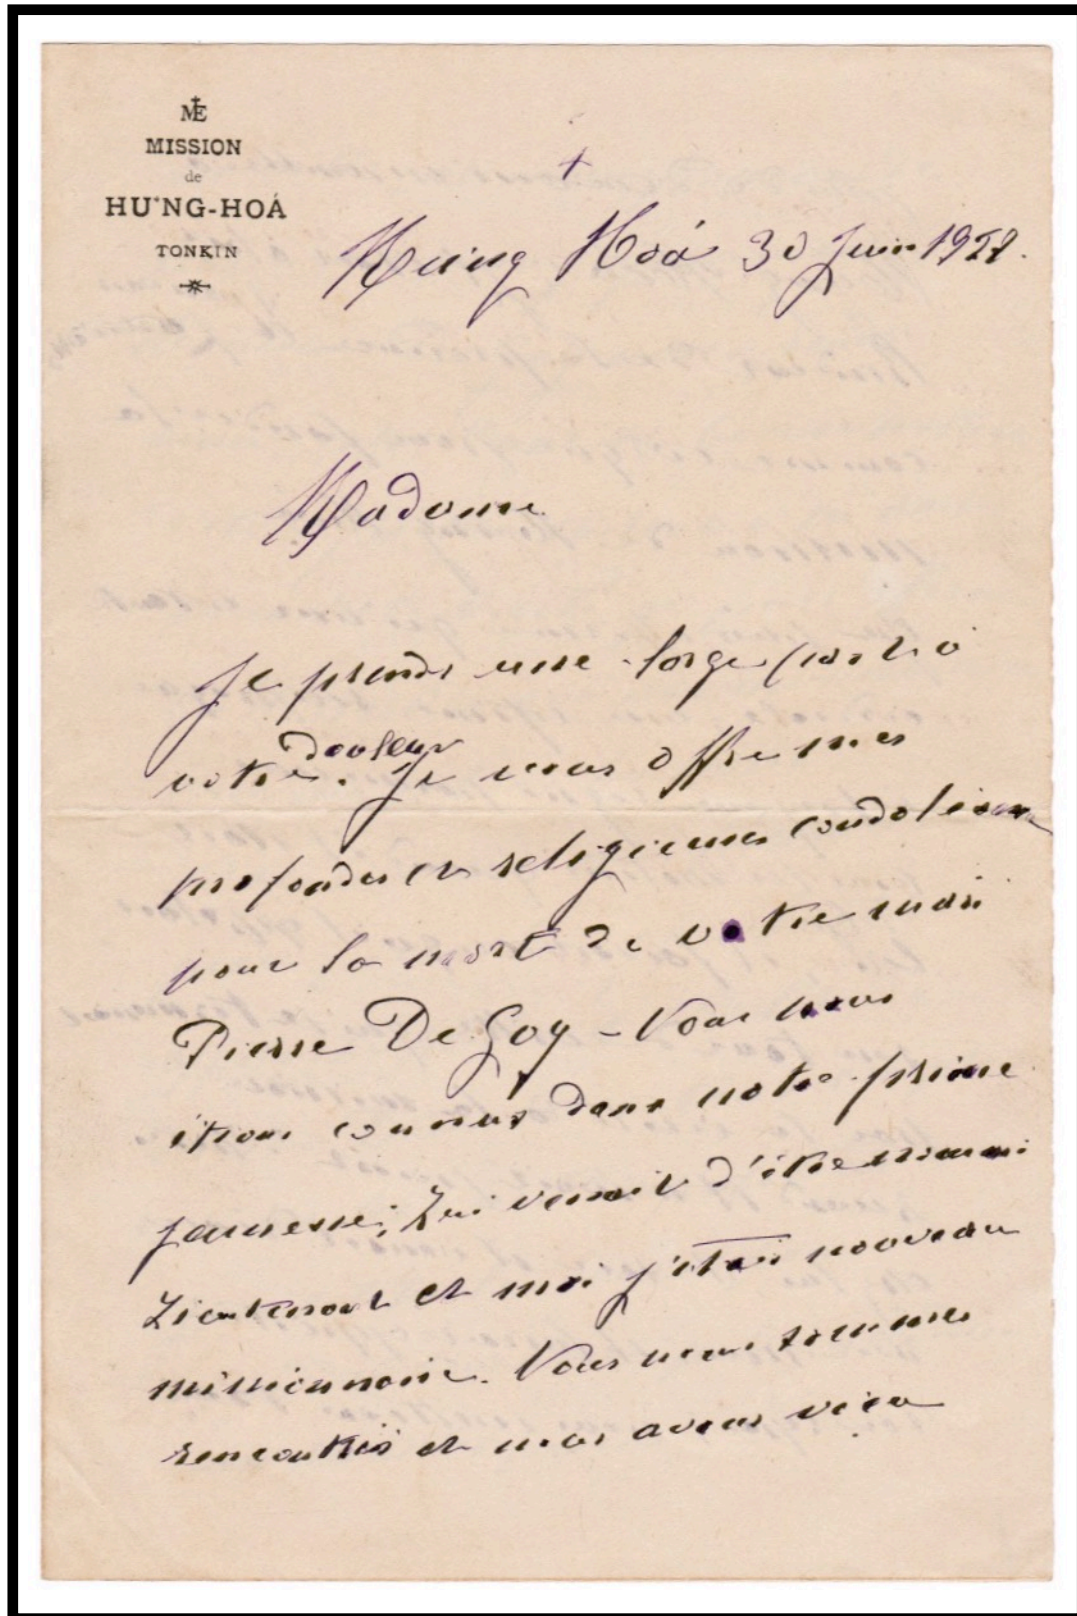 ME
MISSION
de
HƯNG-HOÁ
TONKIN
+
Hưng Hoá 30 Juin
Madame
Je prends une large part à
votre douleur. Je vous offre mes
profondes et religieuses condoléances
pour la mort de votre mari
Pierre De Goy - Nous nous
étions connus dans notre prime
jeunesse; Lui venait d'être nommé
Lieutenant et moi j'étais nouveau
missionnaire. Nous nous sommes
rencontrés et nous avons vécu